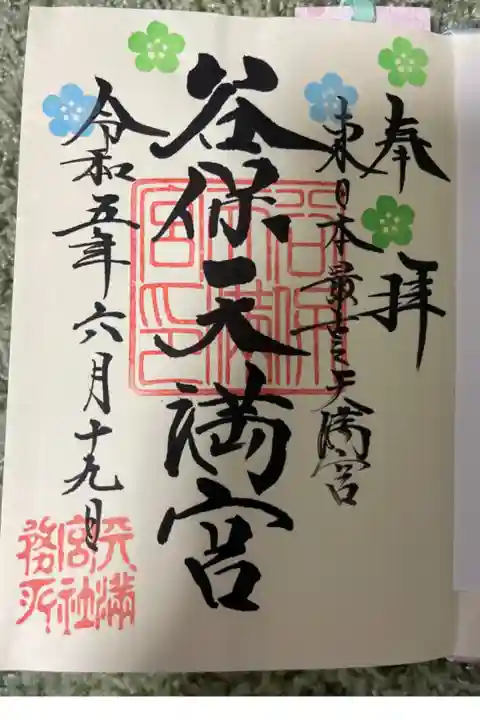 奉拝
東日本最古之天満宮
谷保天満宮
令和五年六月十九日
谷保天満宮印
天満宮社務所